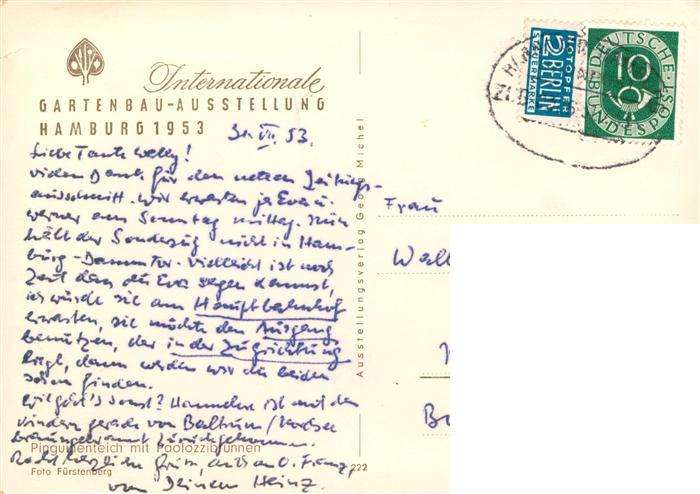 Internationale
GARTENBAU-AUSSTELLUNG
HAMBURG 1953
31. VII. 53.
Liebe Tante Welly!
vielen Dank für den netten Zeitungs-
ausschnitt. Wir erwarten ja Eva u.
Werner am Sonntag mittag. Nun
hält der Sonderzug nicht in Ham-
burg-Dammtor. Vielleicht ist noch
Zeit dass du Eva sagen kannst,
ich würde sie am Hauptbahnhof
erwarten, sie möchte den Ausgang
benutzen, der in der Zugrichtung
liegt, dann werden wir die beiden
schon finden.
Wie geht's sonst? Hannelore ist mit den
Kindern gerade von Baltrum/Nordsee
braungebrannt zurückgekommen.
Recht herzliche Grüße, auch an O. Franz,
von Deinem Heinz.
Pinguinenteich mit Paolozzibrunnen
Foto Fürstenberg
222
Ausstellungsverlag Georg Michel
NOTOPFER
2 BERLIN
STEUERMARKE
DEUTSCHE
BUNDESPOST
10
Frau